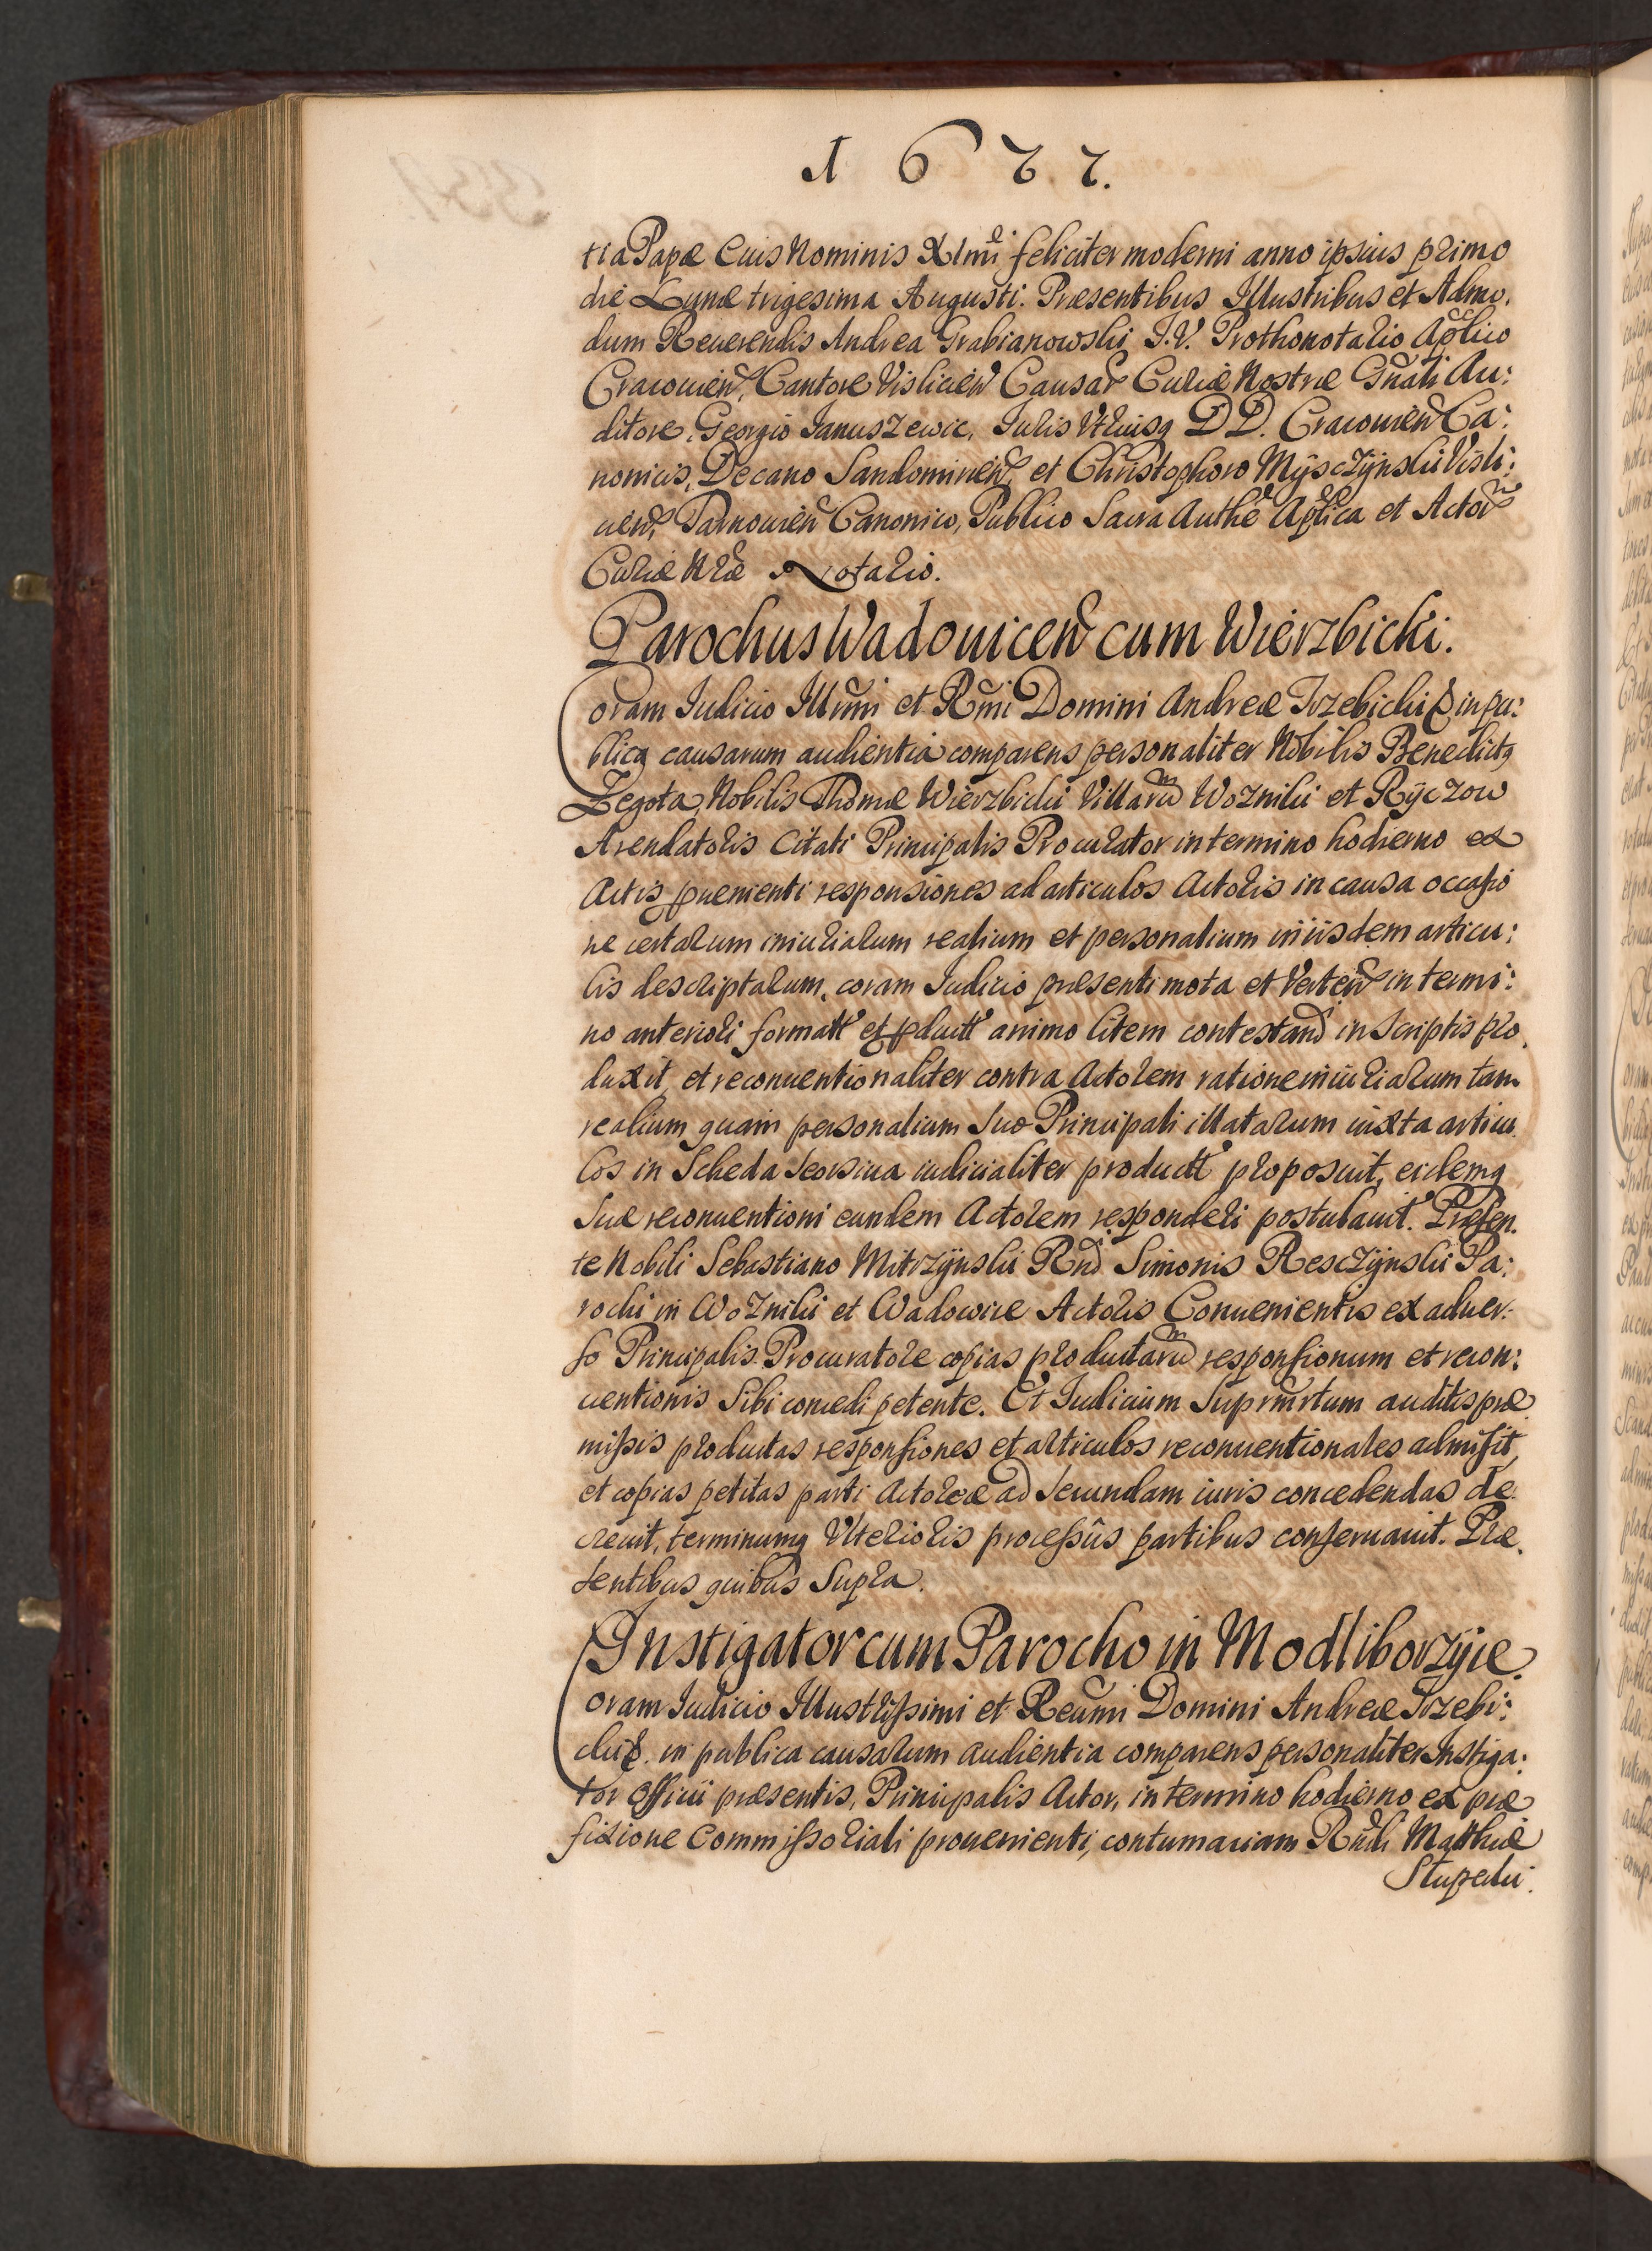 1677.
tia Papæ Eius Nominis XImi feliciter moderni anno ipsius primo
die Lunæ trigesima Augusti. Præsentibus Illustribus et Admo,
dum Reuerendis Andrea Grabianowski I.V. Prothonotario Aplico
Cracouien, Cantore Vislicien Causar Curiæ Nostræ Gnali Au:
ditore, Georgio Januszewic, Iuris Vtriusq DD. Cracouien Ca:
nonicis, Decano Sandomirien, et Christophoro Mÿsczÿnskii Visli:
cien, Tarnouien Canonico, Publico Sacra Authe Aplica et Actor
Curiæ Nræ Notario.
Parochus Wadouicen cum Wierzbicki.
Coram Iudicio Illrmi et Rmi Domini Andreæ Trzebicki & in pu:
blica causarum audientia comparens personaliter Nobilis Benedictq
Zegota, Nobilis Thomæ Wierzbicki Villaru Woznikii et Rÿczow
Arendatoris Citati Principalis Procurator in termino hodierno ex
Actis puenienti responsiones ad articulos Actoris in causa occasio
ne certarum iniuriarum realium et personalium in iisdem articu:
lis descriptarum, coram Iudicio præsenti mota et Verten in termi:
no anteriori formatt et pductt animo litem contestand in Scriptis pro,
duxit, et reconuentionaliter contra Actorem ratione iniuriarum tam
realium quam personalium Suo Principali illatarum iuxta articu
los in Scheda Seorsiua iudicialiter productt proposuit, eidemq
Suæ reconuentioni eundem Actorem responderi postulauit. Præsen
te Nobili Sebastiano Mitrzÿnskii Rnd Simonis Resczÿnskii Pa:
rochi in Woznikii et Wadowice Actoris Conuenientis ex aduer:
so Principalis Procuratore copias productaru responsionum et recon:
uentionis Sibi concedi petente. Et Iudicium Suprmrtum auditis præ
missis productas responsiones et articulos reconuentionales admisit,
et copias petitas parti Actoreæ ad Secundam iuris concedendas de
creuit, terminumq Vlterioris processûs partibus conseruauit. Præ
sentibus quibus Supra.
Instigator cum Parocho in Modliborzÿce.
Coram Iudicio Illustrissimi et Reumi Domini Andreæ Trzebi:
cki &. in publica causarum audientia comparens personaliter Instiga:
tor Officii præsentis, Principalis Actor, in termino hodierno ex præ
fixione Commissoriali prouenienti, contumaciam Rndi Matthiæ
Stupecki.